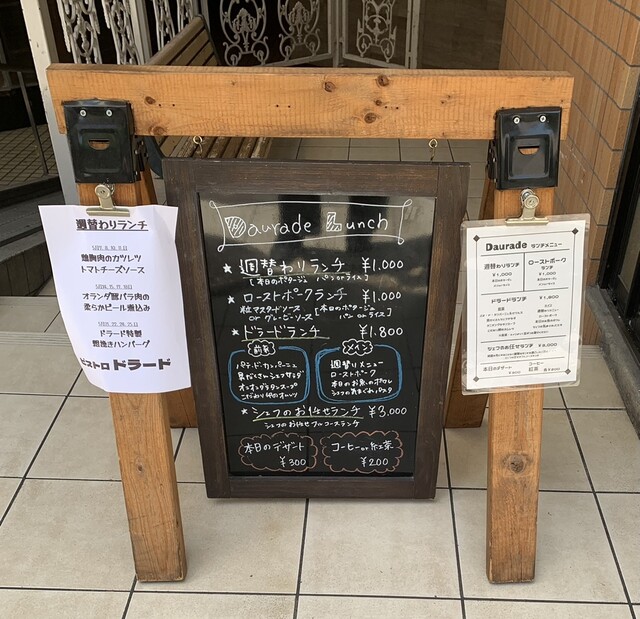 週替わりランチ
鶏胸肉のカツレツ
トマトチーズソース
オランダ豚バラ肉の
柔らかビール煮込み
ドラード特製
粗挽きハンバーグ
ビストロ ドラード
Daurade Lunch
★ 週替わりランチ ¥1,000
[本日のポタージュ パンorライス]
★ ローストポークランチ ¥1,000
粒マスタードソース
or グレービーソース [本日のポタージュ
パン or ライス]
★ ドラードランチ ¥1,800
前菜
パテ・ド・カンパーニュ
具だくさんシェフサラダ
オニオングラタンスープ
こだわり卵のオムレツ
メイン
週替りメニュー
ローストポーク
本日のお魚のポワレ
シェフの気まぐれパスタ
★ シェフのお任せランチ ¥3,000
シェフのお任せフルコースランチ
本日のデザート
¥300
コーヒー or 紅茶
¥200
Daurade ランチメニュー
週替わりランチ
¥1,000
ローストポーク
ランチ
¥1,000
ドラードランチ
¥1,800
シェフのお任せランチ ¥3,000
本日のデザート
コーヒー
紅茶